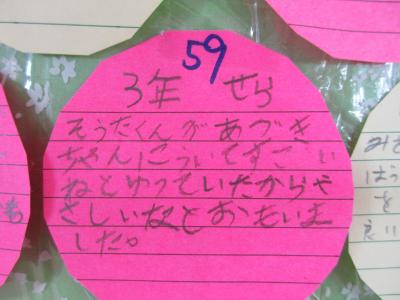 59
3年 せら
そうたくんがあづき
ちゃんにこういてすごい
ねとゆっていたからや
さしいなとおもいま
した。
も
みさ
ばう
を
良い